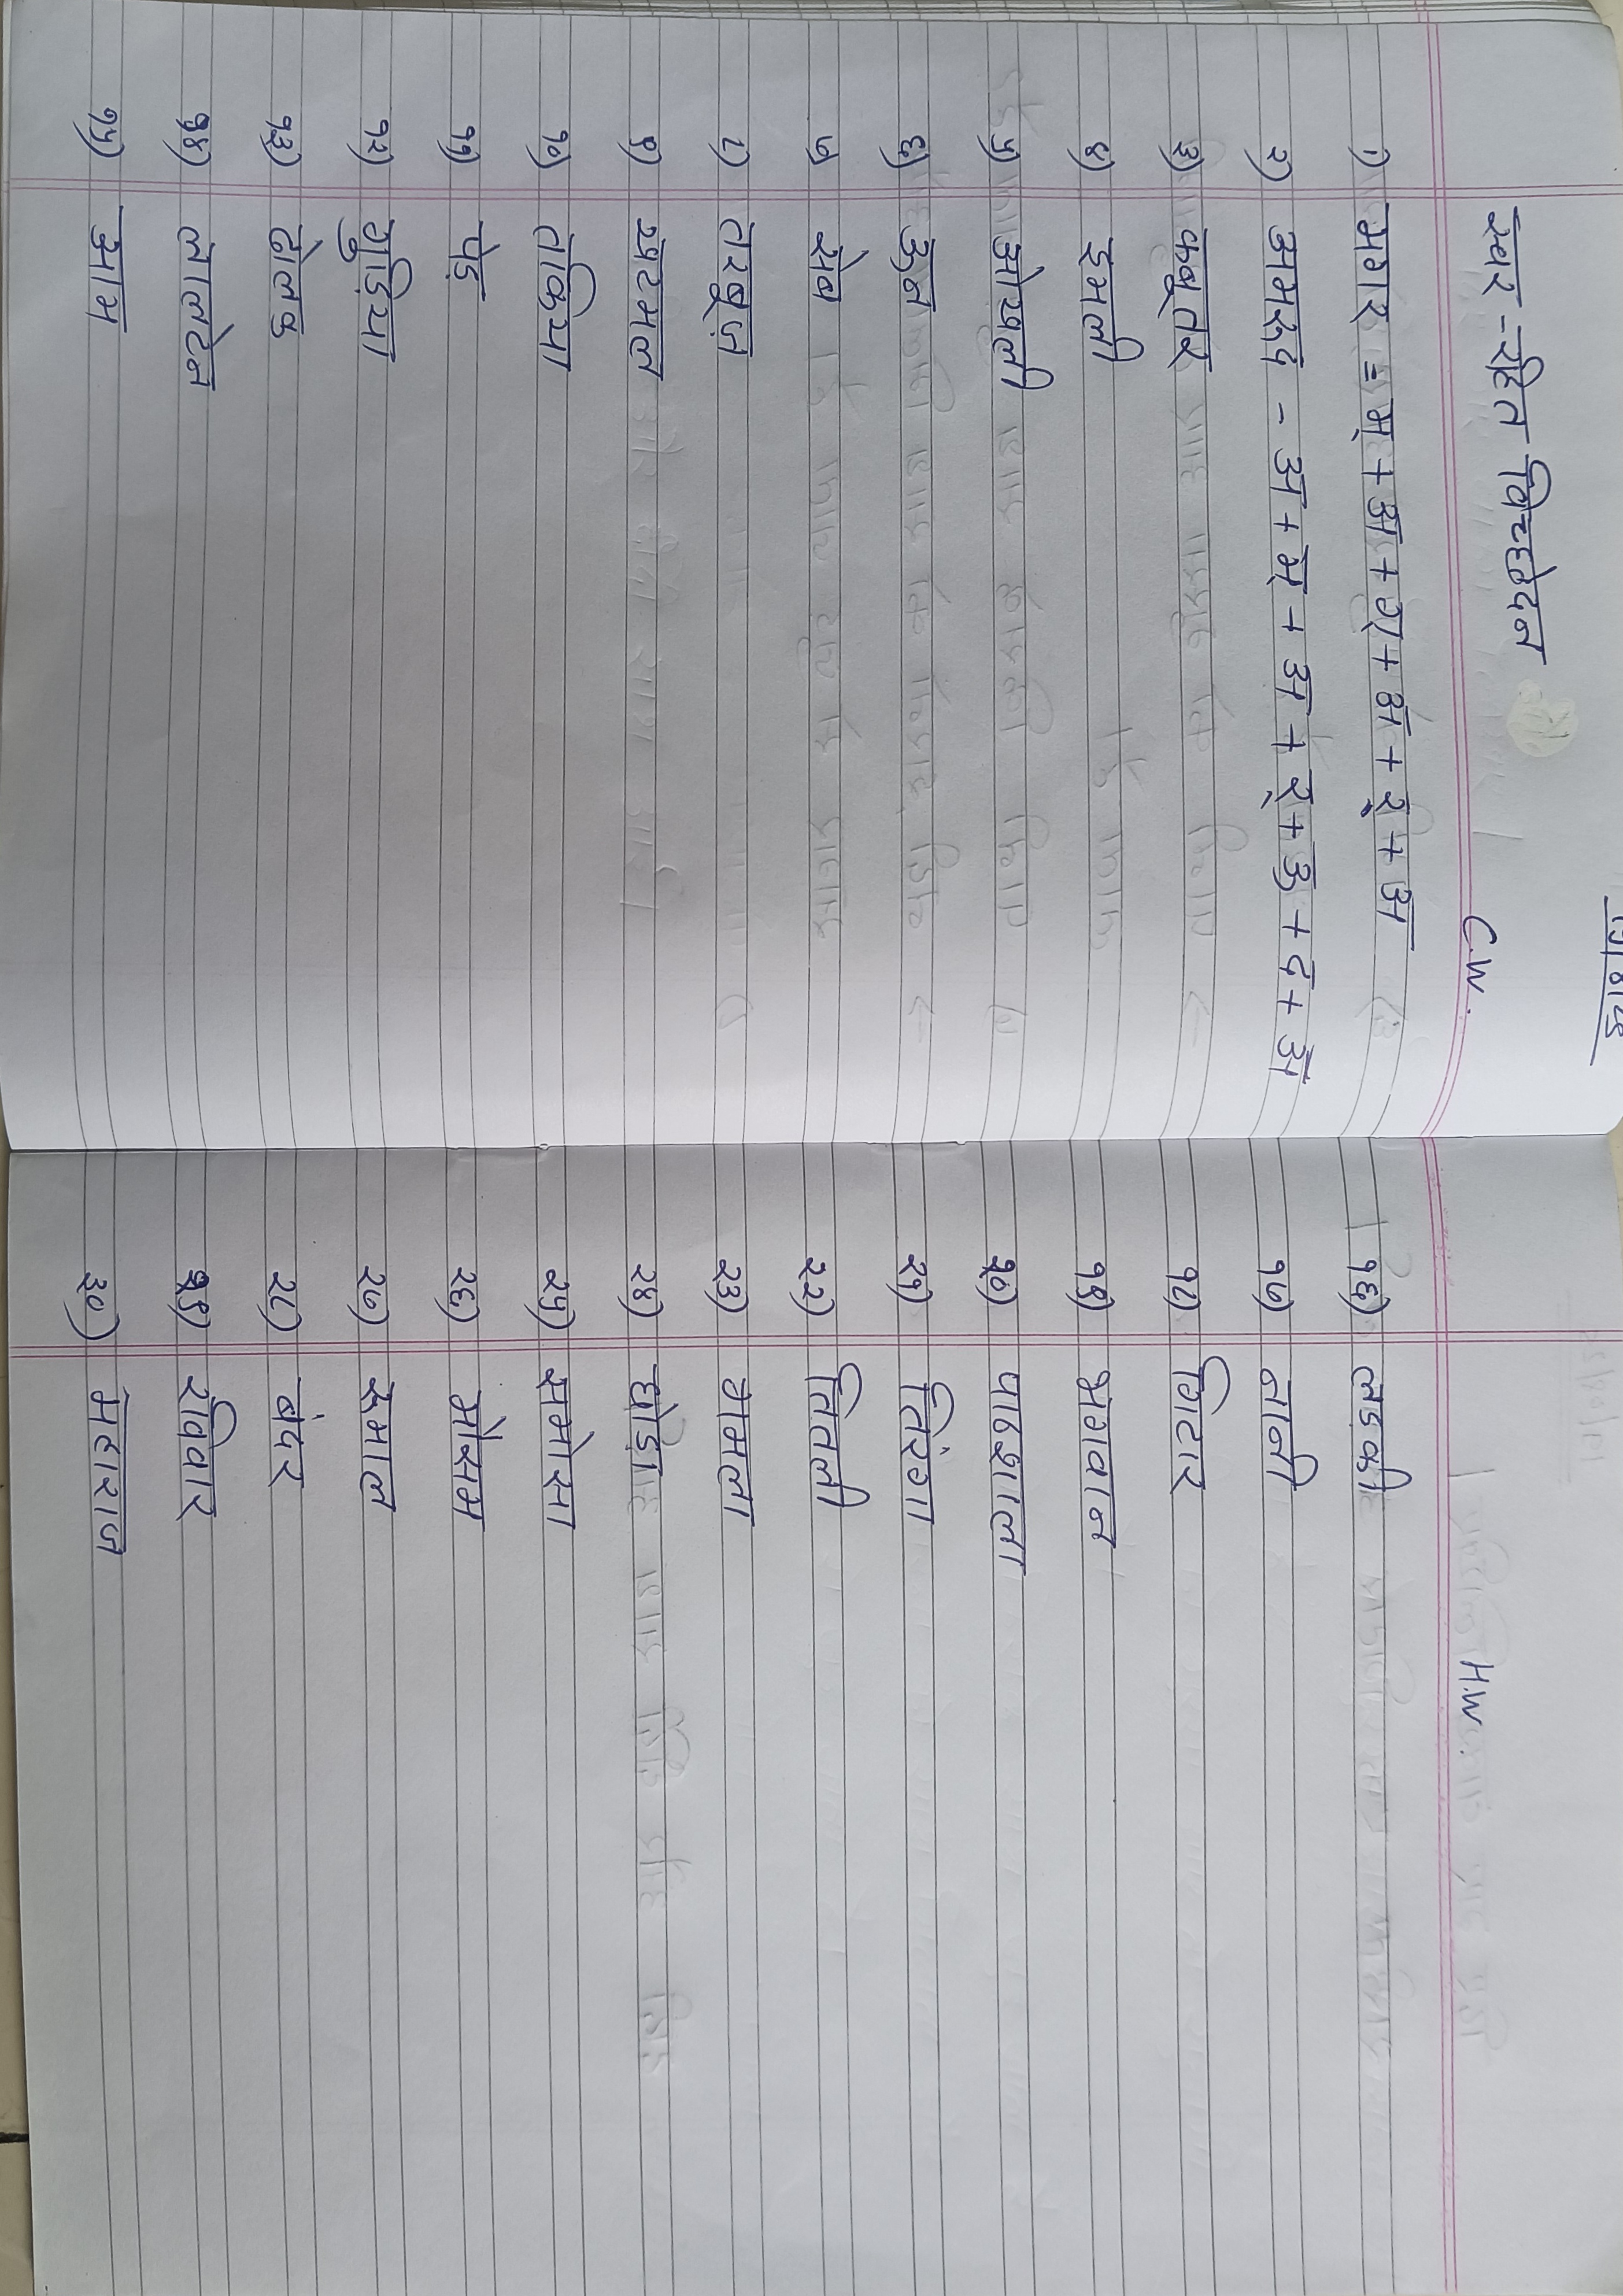 स्वर - रहित विच्छेदन
C.W.
१) मगर = म् + अ + ग् + अ + र् + अ
२) अमरूद - अ + म् + अ + र् + ऊ + द + अ
३) कबूतर
४) इमली
५) ओखली
६) ऊन
७) सेब
८) तरबूज़
९) खटमल
१०) तकिया
११) पेड़
१२) गुड़िया
१३) ढोलक
१४) लालटेन
१५) आम
H.W
१६) लड़की
१७) नानी
१८) गिटार
१९) भगवान
२०) पाठशाला
२१) तिरंगा
२२) तितली
२३) गमला
२४) घोड़ा
२५) समोसा
२६) मौसम
२७) रूमाल
२८) बंदर
२९) रविवार
३०) महाराज